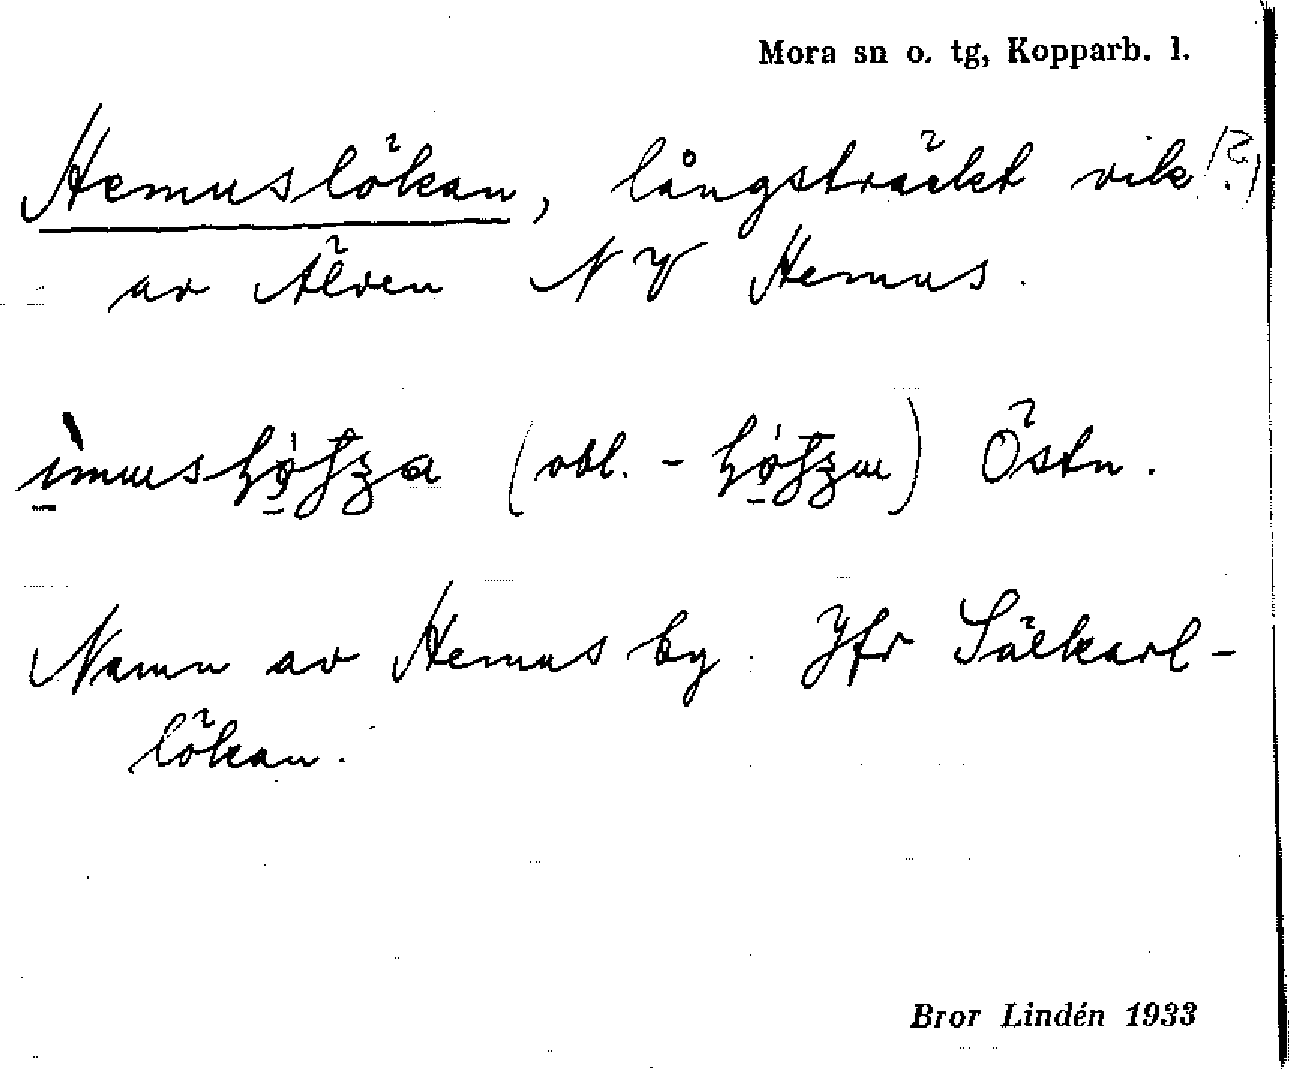 Mora sn o. tg, Kopparb. l.
Hemuslökan, långsträckt vik (?)
av Älven NV Hemus.
(obl. - ) Östn.
Namn av Hemus by. Jfr Sälkarl-
lökan.
Bror Lindén 1933